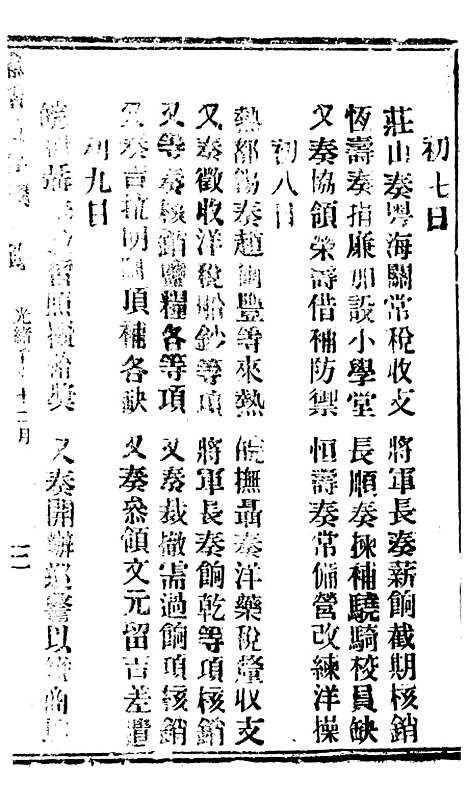 初七日
莊山奏粵海關常稅收支　將軍長奏薪餉截期核銷
恆壽奏捐廉卯設小學堂　長順奏揀補驍騎校員缺
又奏協領榮壽借補防禦　恒壽奏常備營改練洋操
初八日
熱都錫奏趙豐等來熱　皖撫聶奏洋藥稅釐收支
又奏徵收洋稅船鈔等項　將軍長奏餉乾等項核銷
又等奏核銷鹽糧各等項　又奏裁撤需過餉項核銷
又奏吉拉明項補各缺　又奏叅領文元留吉差遣
初九日
照獎　又奏開辦巡警以商
光緒十二月